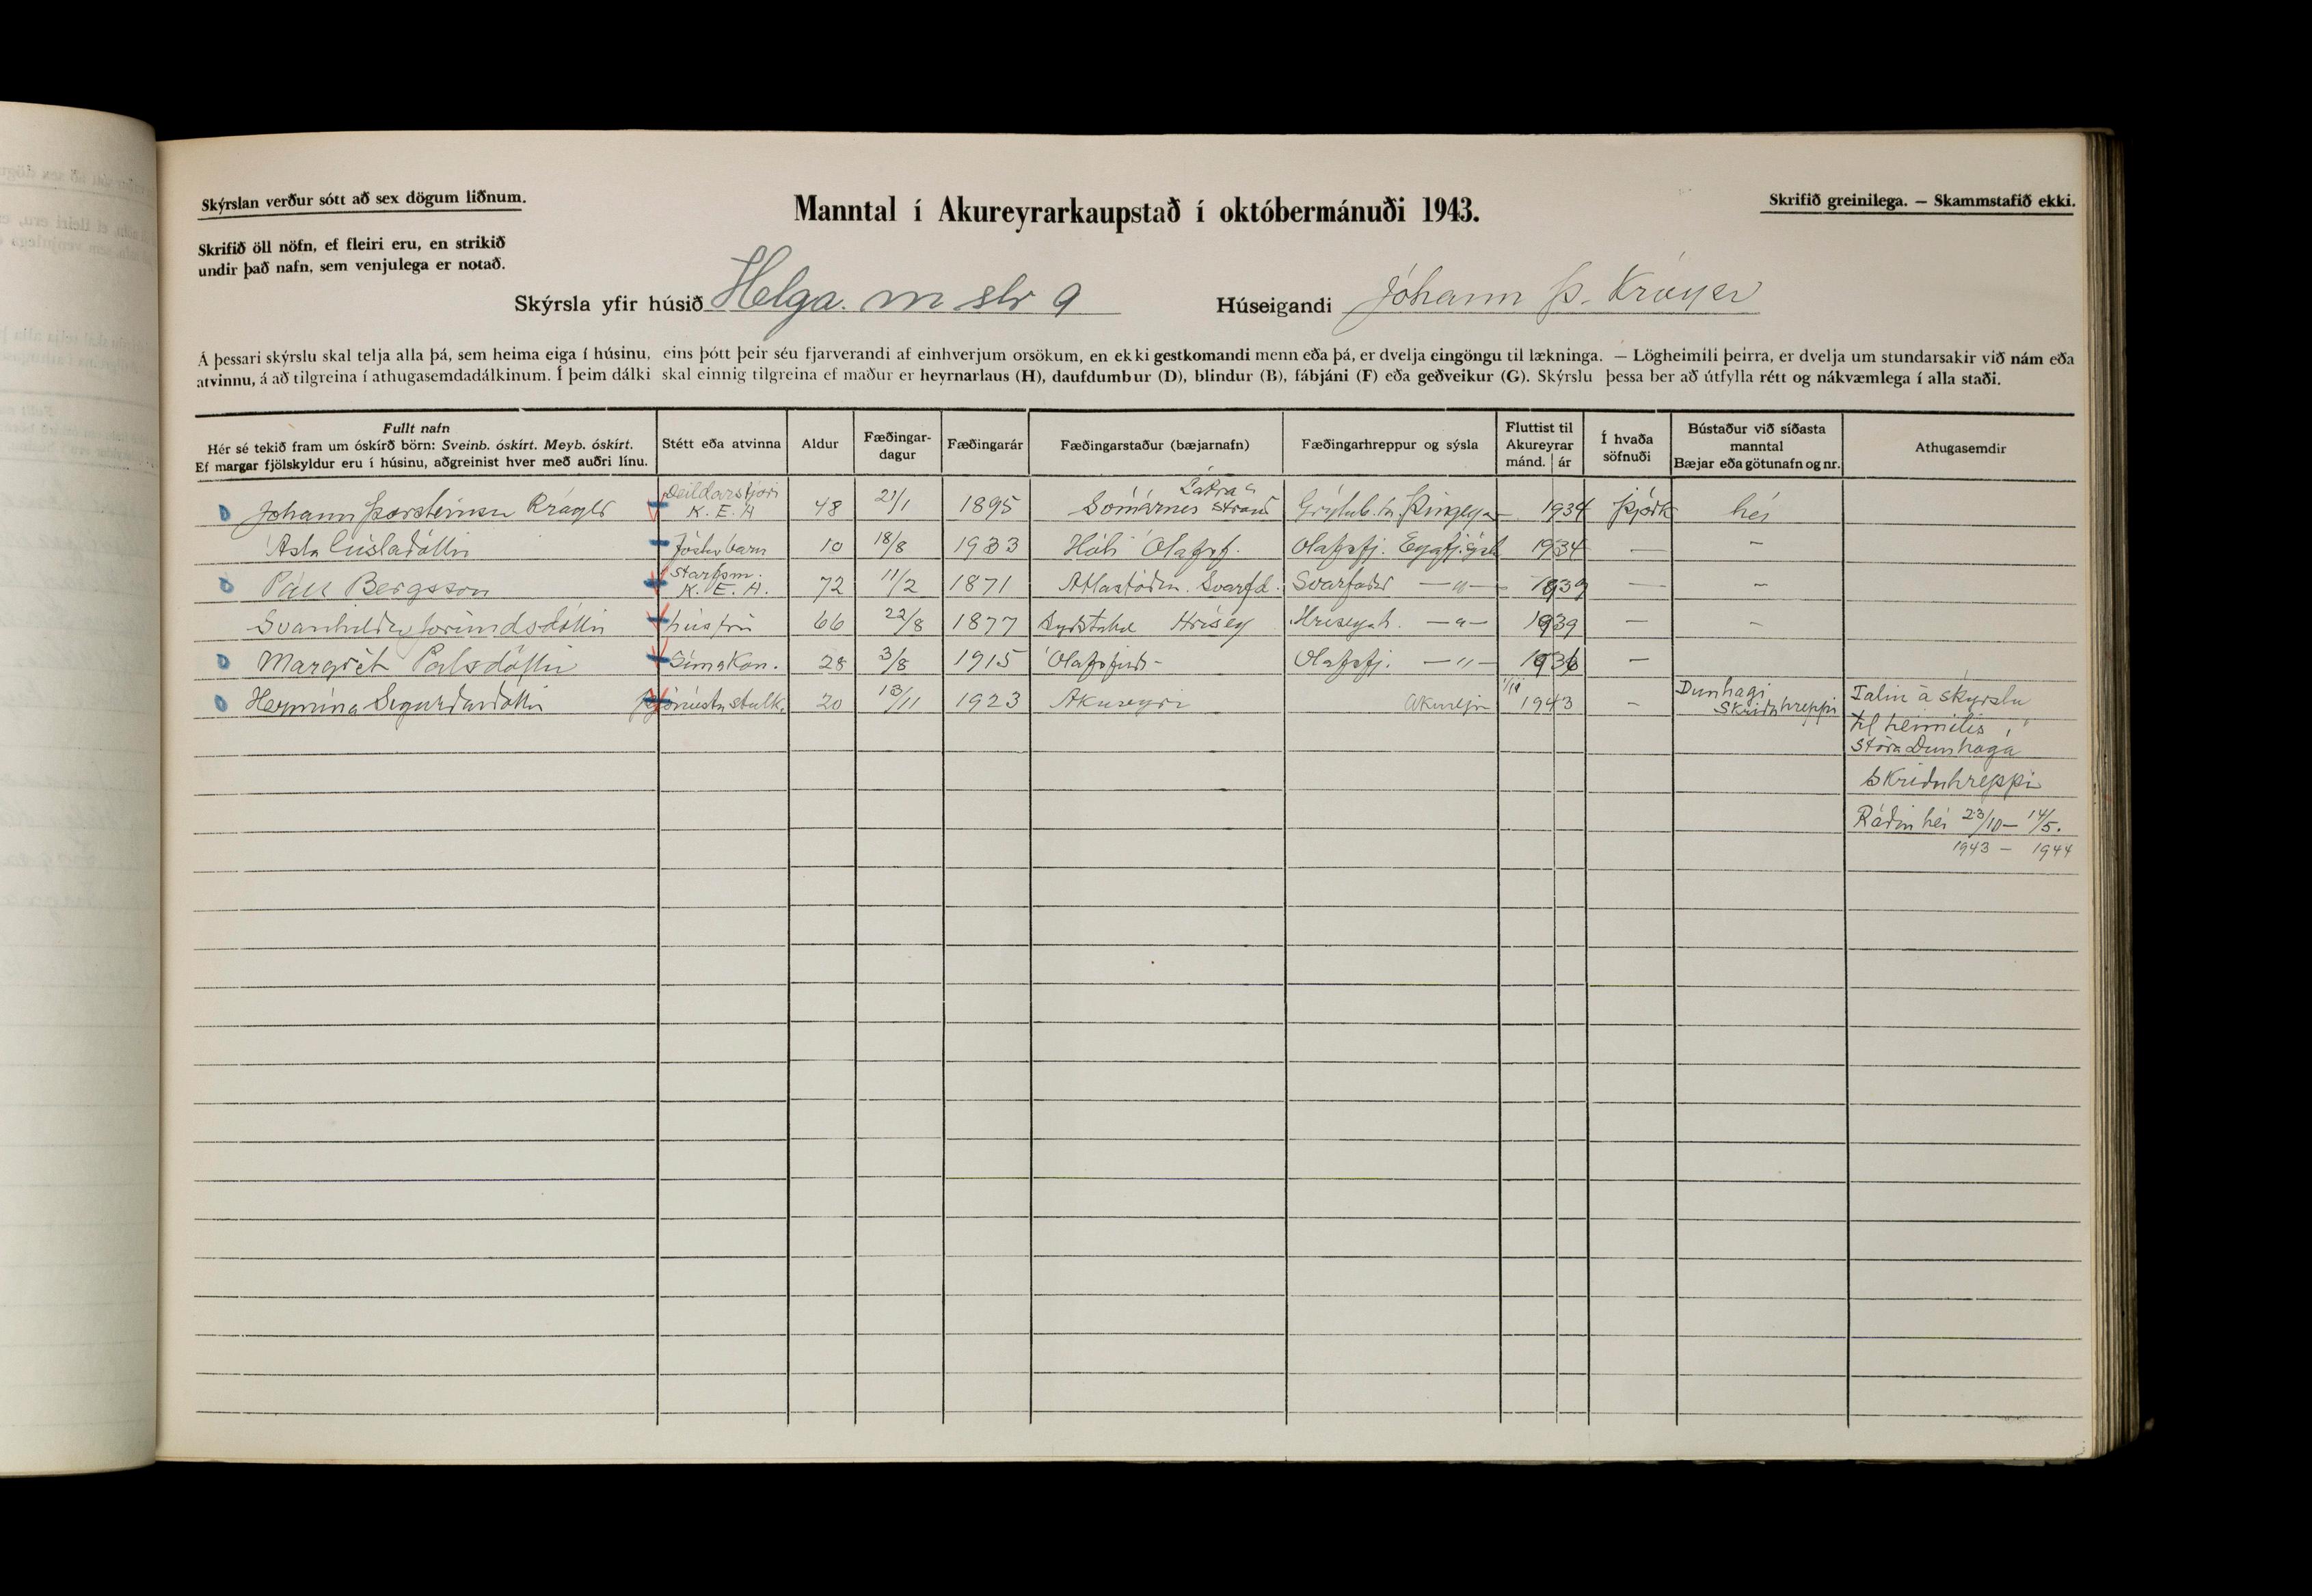 Skýrslan verður sótt að sex dögum liðnum.
Manntal í Akureyrarkaupstað í októbermánuði 1943.
Skrifið greinilega. — Skammstafið ekki.
Skrifið öll nöfn, ef fleiri eru, en strikið
undir það nafn, sem venjulega er notað.
Skýrsla yfir húsið Helga. m str 9 Húseigandi Jóhann Þ. Kröyer
Á þessari skýrslu skal telja alla þá, sem heima eiga í húsinu, eins þótt þeir séu fjarverandi af einhverjum orsökum, en ekki gestkomandi menn eða þá, er dvelja eingöngu til lækninga. — Lögheimili þeirra, er dvelja um stundarsakir við nám eða
atvinnu, á að tilgreina í athugasemdadálkinum. Í þeim dálki skal einnig tilgreina ef maður er heyrnarlaus (H), daufdumbur (D), blindur (B), fábjáni (F) eða geðveikur (G). Skýrslu þessa ber að útfylla rétt og nákvæmlega í alla staði.
Fullt nafn
Hér sé tekið fram um óskírð börn: Sveinb. óskírt. Meyb. óskírt.
Ef margar fjölskyldur eru í húsinu, aðgreinist hver með auðri línu.
Stétt eða atvinna
Aldur
Fæðingar-
dagur
Fæðingarár
Fæðingarstaður (bæjarnafn)
Fæðingarhreppur og sýsla
Fluttist til
Akureyrar
mánd. ár
Í hvaða
söfnuði
Bústaður við síðasta
manntal
Bæjar eða götunafn og nr.
Athugasemdir
Jóhann Þorsteinsson Kröyer Deildarstjóri K. E. A 48 21/1 1895 Látra Strönd Grýtub.h. Þingeya 1934 Þjóðk hér
Ásta Gísladóttir Fósturbarn 10 18/8 1933 Hóli Ólafsf. Ólafsfj. Eyjafj.sýsl 1934 — —
Páll Bergsson Starfsm. K. E. A. 72 11/2 1871 Atlastöðum. Svarfd. Svarfaðar —"— 1939 — —
Svanhildur Jörundsdóttir húsfrú 66 22/8 1877 Syðstabæ Hrísey Hríseyjah. —"— 1939 — —
Margrét Pálsdóttir Símakon. 28 3/8 1915 Ólafsfirði Ólafsfj. —"— 1936 —
Hermína Sigurðardóttir Þjónustustulk. 20 13/11 1923 Akureyri Akureyri 1943 — Dunhagi Skriðuhreppi Talin á skýrslu
til heimilis í
Stóra Dunhaga
Skriðuhreppi
Ráðin hér 23/10 — 14/5.
1943 — 1944